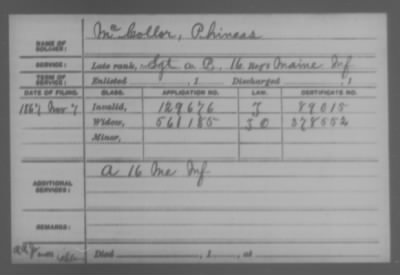 NAME OF SOLDIER: McCollor, Phineas
SERVICE: Late rank, Sgt Co C, 16 Reg't Maine Inf
TERM OF SERVICE: Enlisted , 1 Discharged , 1
DATE OF FILING. CLASS. APPLICATION NO. LAW. CERTIFICATE NO.
1867 Nov 7 Invalid, 129676 89015
Widow, 561185 378552
Minor,
ADDITIONAL SERVICES: A 16 Me Inf
REMARKS:
Died , 1 , at